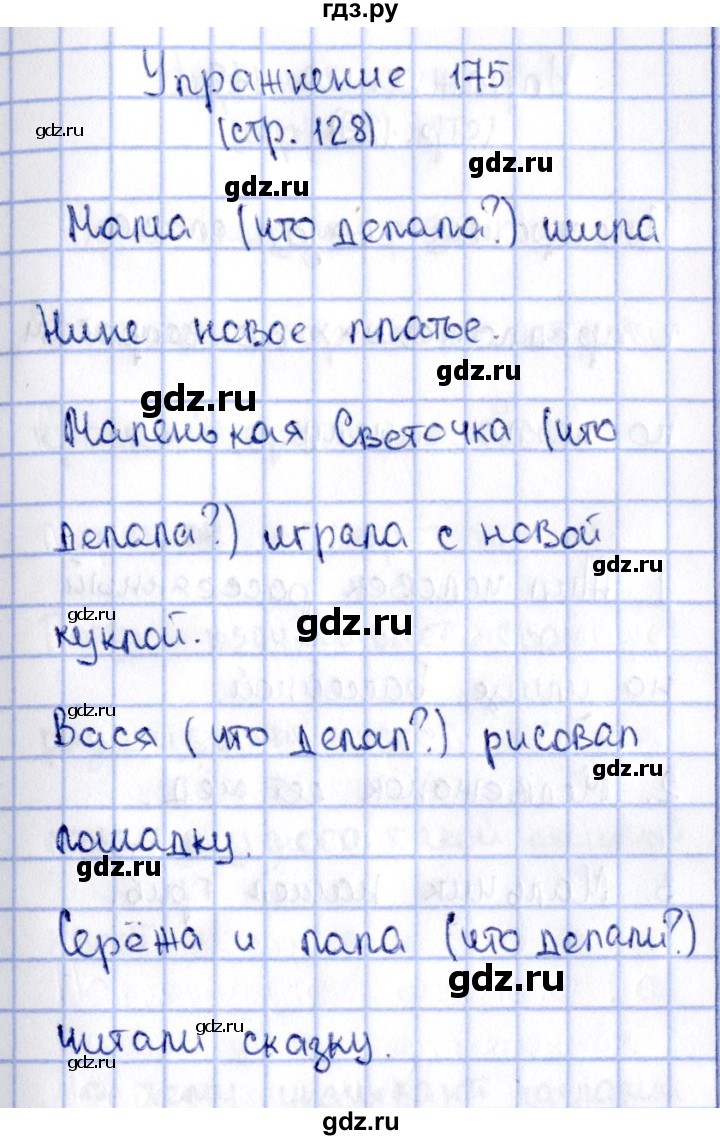 гдз.ру
Упражнение 175
gdz.ru
(стр. 128)
gdz.ru
gdz.ru
Мама (что делала?) шила
gdz.ru
gdz.ru
Нине новое платье.
gdz.ru
gdz.ru
Маленькая Светочка (что
делала?) играла с новой
gdz.ru
gdz.ru
gdz.ru
куклой.
gdz.ru
Вася (что делал?) рисовал
gdz.ru
лошадку.
gdz.ru
Серёжа и папа (что делали?)
gdz.ru
gdz.ru
читали сказку.
gdz.ru
gdz.ru